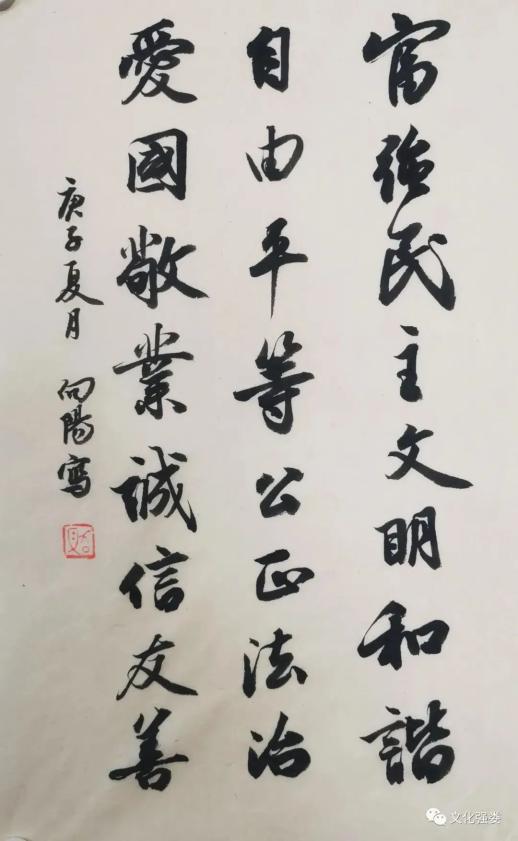 富強民主文明和諧
自由平等公正法治
愛國敬業誠信友善
庚子夏月 向陽寫
文化强娄